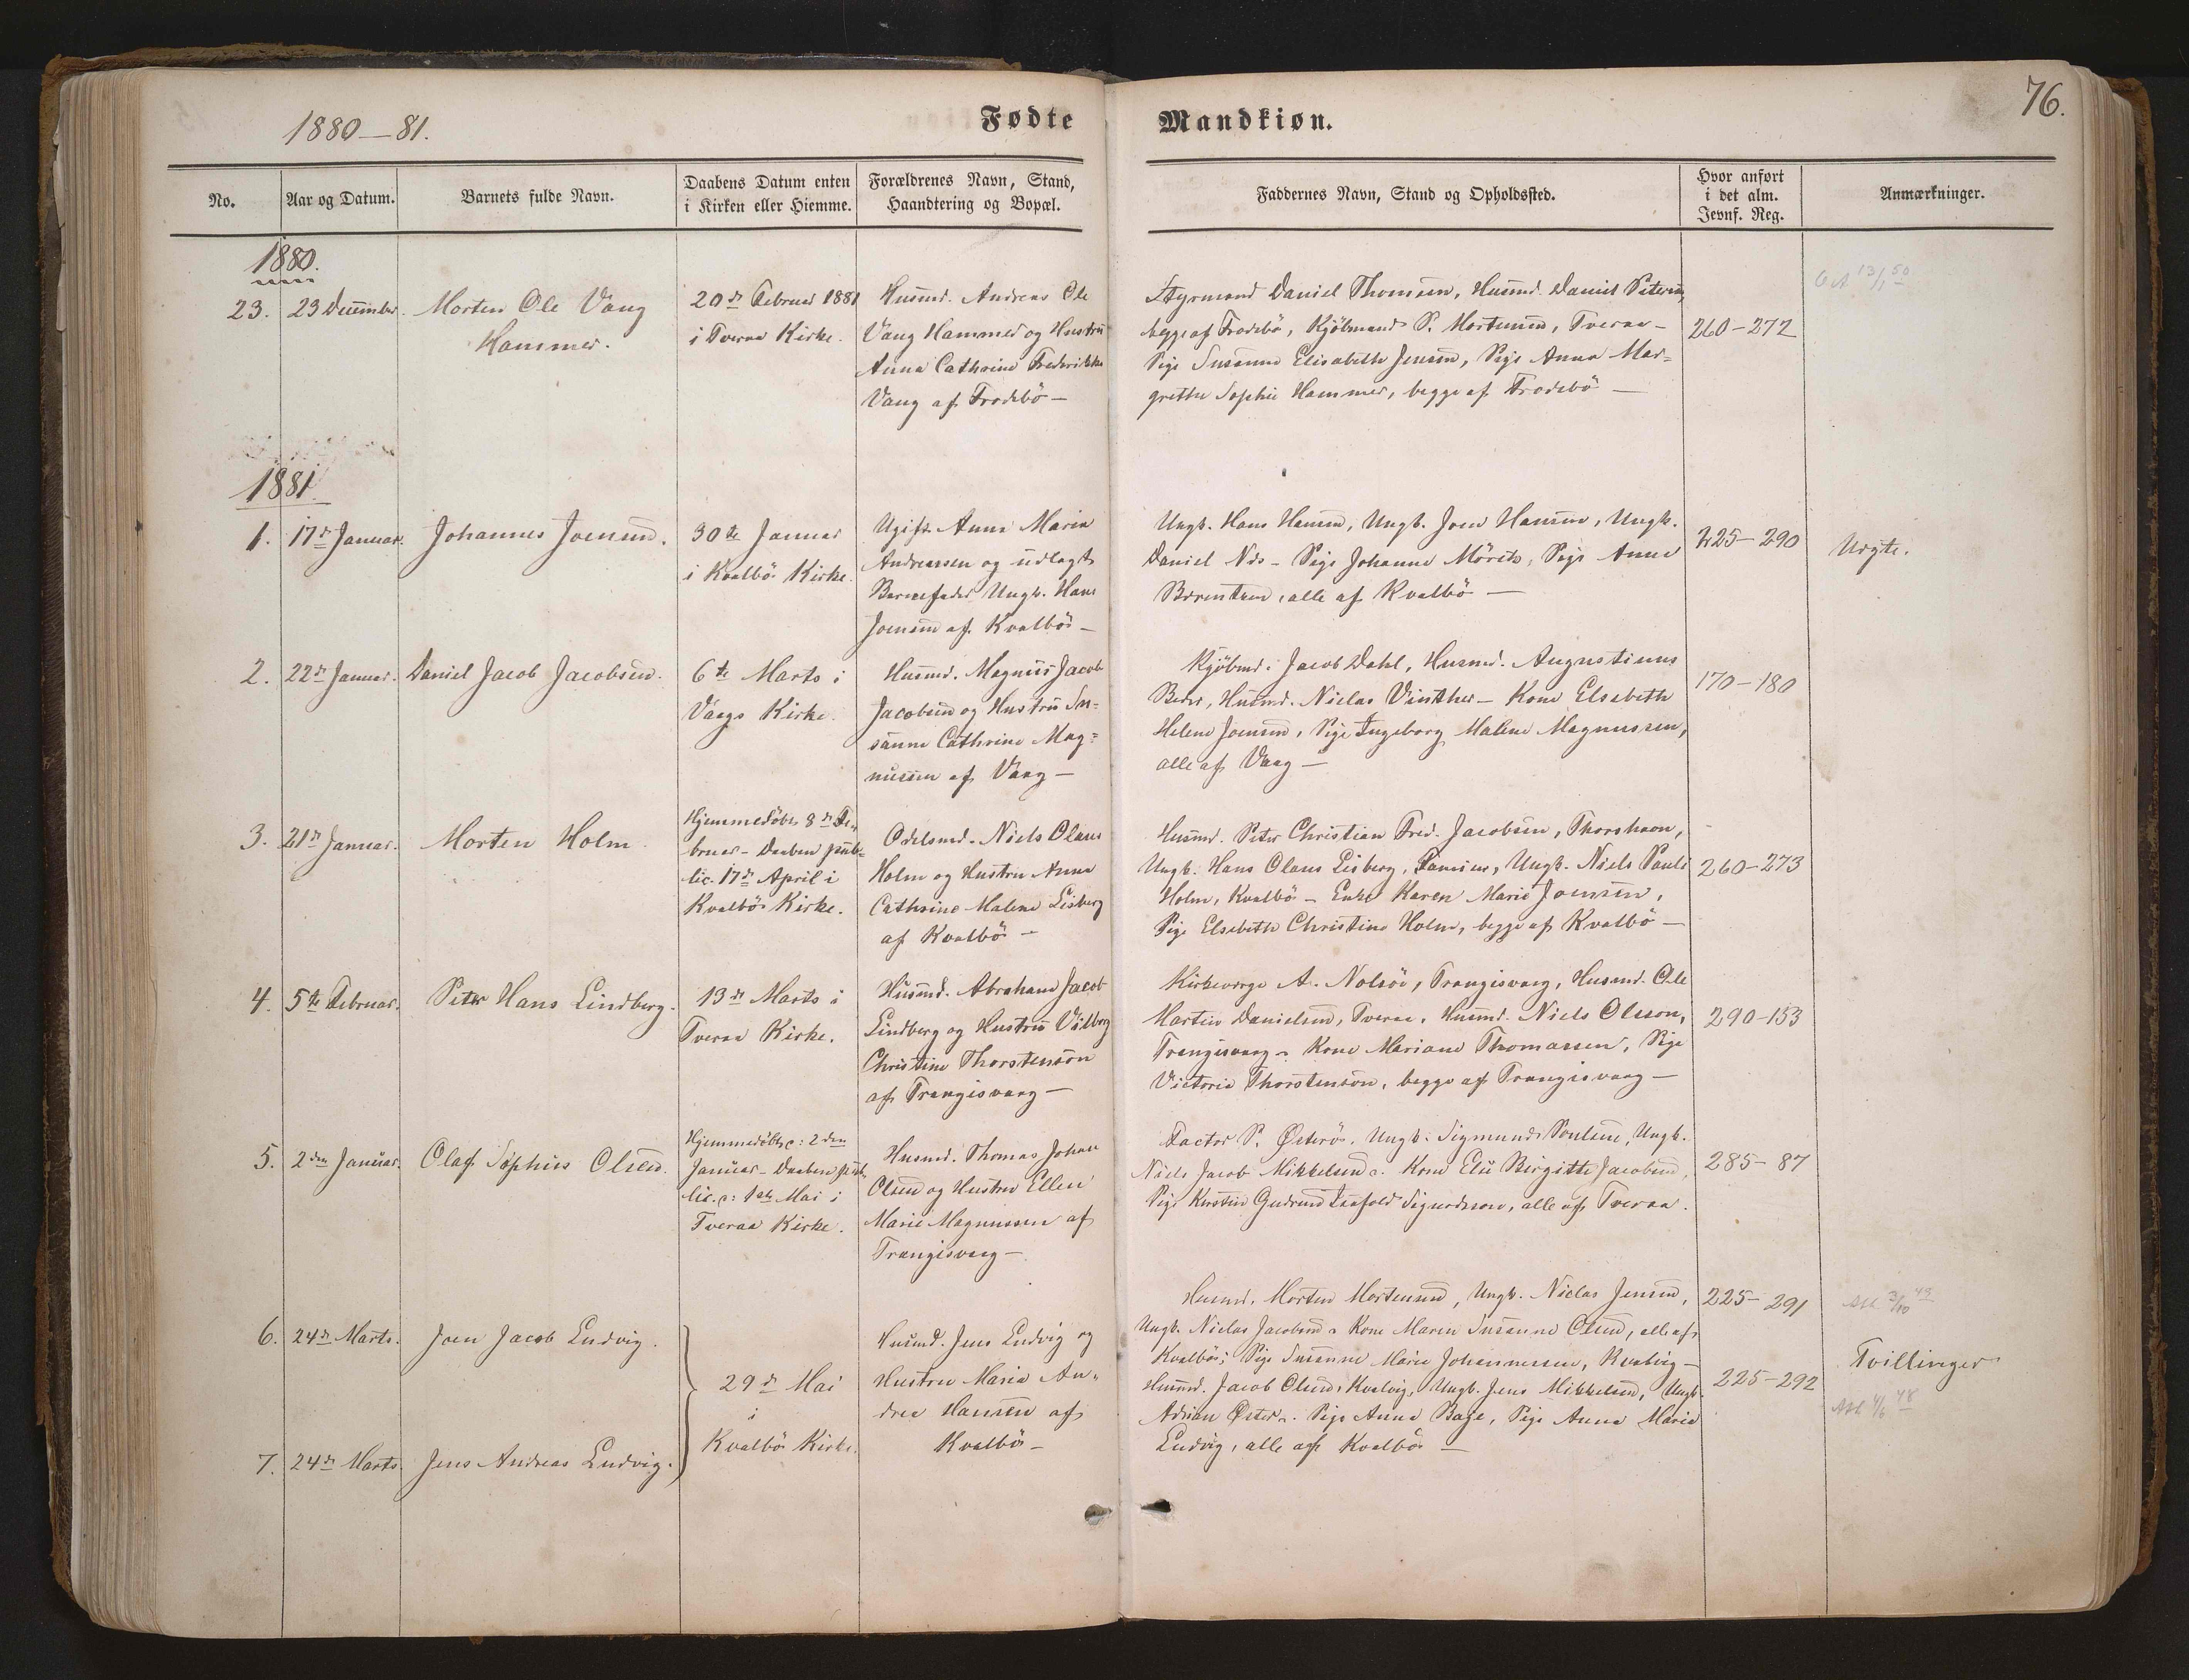 1880-81.
Fødte
Mandkiøn.
76.
No.
Aar og Datum.
Barnets fulde Navn.
Daabens Datum enten
i Kirken eller Hiemme.
Forældrenes Navn, Stand,
Haandtering og Bopæl.
Faddernes Navn, Stand og Opholdssted.
Hvor anført
i det alm.
Jevnf. Reg.
Anmærkninger.
1880.
23.
23 December.
Morten Ole Vang
Hammer.
20de Februar 1881
i Tveraa Kirke.
Husmd. Andreas Ole
Vang Hammer og Hustru
Anna Cathrine Frederikke
Vang af Frodebö-
Styrmand Daniel Thomsen, Husmd. Daniel Petersen,
begge af Frodebö, Kjöbmand P. Mortensen, Tveraa-
Pige Susanne Elisabeth Jensen, Pige Anna Mar=
grethe Sophie Hammer, begge af Frodebö-
260-272
1881.
1.
17de Januar.
Johannes Joensen.
30te Januar
i Kvalbö Kirke.
Ugift Anna Maria
Andreassen og udlagt
Barnefader Ungk. Hans
Joensen af Kvalbö-
Ungk. Hans Hansen, Ungk. Joen Hansen, Ungk.
Daniel Nds- Pige Johanne Möritz, Pige Anne
Berentsen, alle af Kvalbö-
225-290
Uægte.
2.
22de Januar.
Daniel Jacob Jacobsen.
6te Marts i
Vaags Kirke.
Husmd. Magnus Jacob
Jacobsen og Hustru Su=
sanne Cathrine Mag=
nussen af Vaag-
Kjöbmd. Jacob Dahl, Husmd. Augustinus
Beder, Husmd. Niclas Vinther- Kone Elsebeth
Helene Joensen, Pige Ingeborg Malene Magnussen,
alle af Vaag-
170-180
3.
21de Januar.
Morten Holm.
Hjemmedöbt 8de Fe=
bruar- Daaben pub=
lic. 17de April i
Kvalbö Kirke.
Odelsmd. Niels Olaus
Holm og Hustru Anna
Cathrine Malene Lisberg
af Kvalbö-
Husmd. Peter Christian Fred. Jacobsen, Thorshavn,
Ungk. Hans Olaus Lisberg, Famien, Ungk. Niels Pauli
Holm, Kvalbö- Enke Karen Marie Joensen,
Pige Elsebeth Christine Holm, begge af Kvalbö-
260-273
4.
5te Februar.
Peter Hans Lindberg.
13de Marts i
Tveraa Kirke.
Husmd. Abraham Jacob
Lindberg og Hustru Vilborg
Christine Thorstenson
af Trangisvaag-
Kirkeværge A. Nolsöe, Trangisvaag, Husmd. Ole
Martin Danielsen, Tveraa, Husmd. Niels Olsson,
Trangisvaag- Kone Mariane Thomassen, Pige
Victoria Thorstenson, begge af Trangisvaag-
290-153
5.
2den Januar.
Olaf Sophus Olsen.
Hjemmedöbt d: 2den
Januar- Daaben pub=
lic. d: 1ste Mai i
Tveraa Kirke.
Husmd. Thomas Johan
Olsen og Hustru Ellen
Marie Magnussen af
Trangisvaag-
Factor P. Österö, Ungk. Sigmund Poulsen, Ungk.
Niels Jacob Mikkelsen- Kone Elsi Birgitte Jacobsen,
Pige Kirstin Gudrun Sigurdsson, alle af Tveraa.
285-87
6.
24de Marts.
Joen Jacob Ludvig.
29de Mai
i
Kvalbö Kirke.
Husmd. Jens Ludvig og
Hustru Maria An=
drea Hansen af
Kvalbö-
Husmd. Morten Mortensen, Ungk. Niclas Jensen,
Ungk. Niclas Jacobsen- Kone Maren Susanne Olsen, alle af
Kvalbö; Pige Susanne Marie Johannessen, Kvalvig-
Husmd. Jacob Olsen, Kvalvig, Ungk. Jens Mikkelsen, Ungk.
Adrian Öster-. Pige Anna Baje, Pige Anna Maria
Ludvig, alle af Kvalbö-
225-291
225-292
Tvillinger
7.
24de Marts.
Jens Andreas Ludvig.